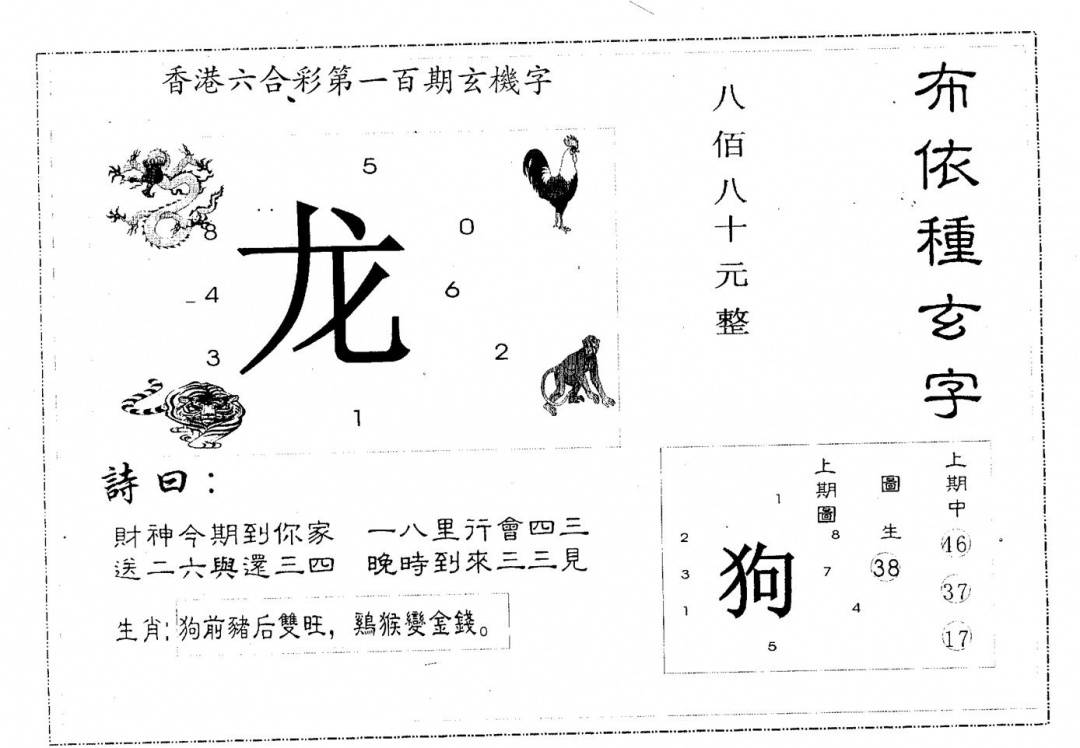 香港六合彩第一百期玄機字
布依種玄字
八佰八十元整
5
0
8
龙
4
6
3
2
1
詩曰：
財神今期到你家 一八里行會四三
送二六與還三四 晚時到來三三見
生肖:狗前豬后雙旺，鷄猴變金錢。
上期圖
圖生
38
上期中
46
37
17
1
2
8
3
狗
7
1
4
5